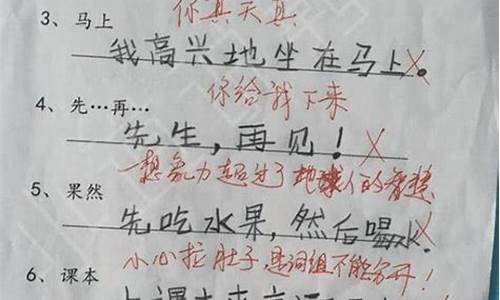 你真天真
3、马上
我高兴地坐在马上。
你给我下来
4、先…再…
先生,再见!
想象力超过了地球人的智慧
5、果然
先吃水果,然后喝水.
小心拉肚子,是词组不能分开!
6、课本
上课本来